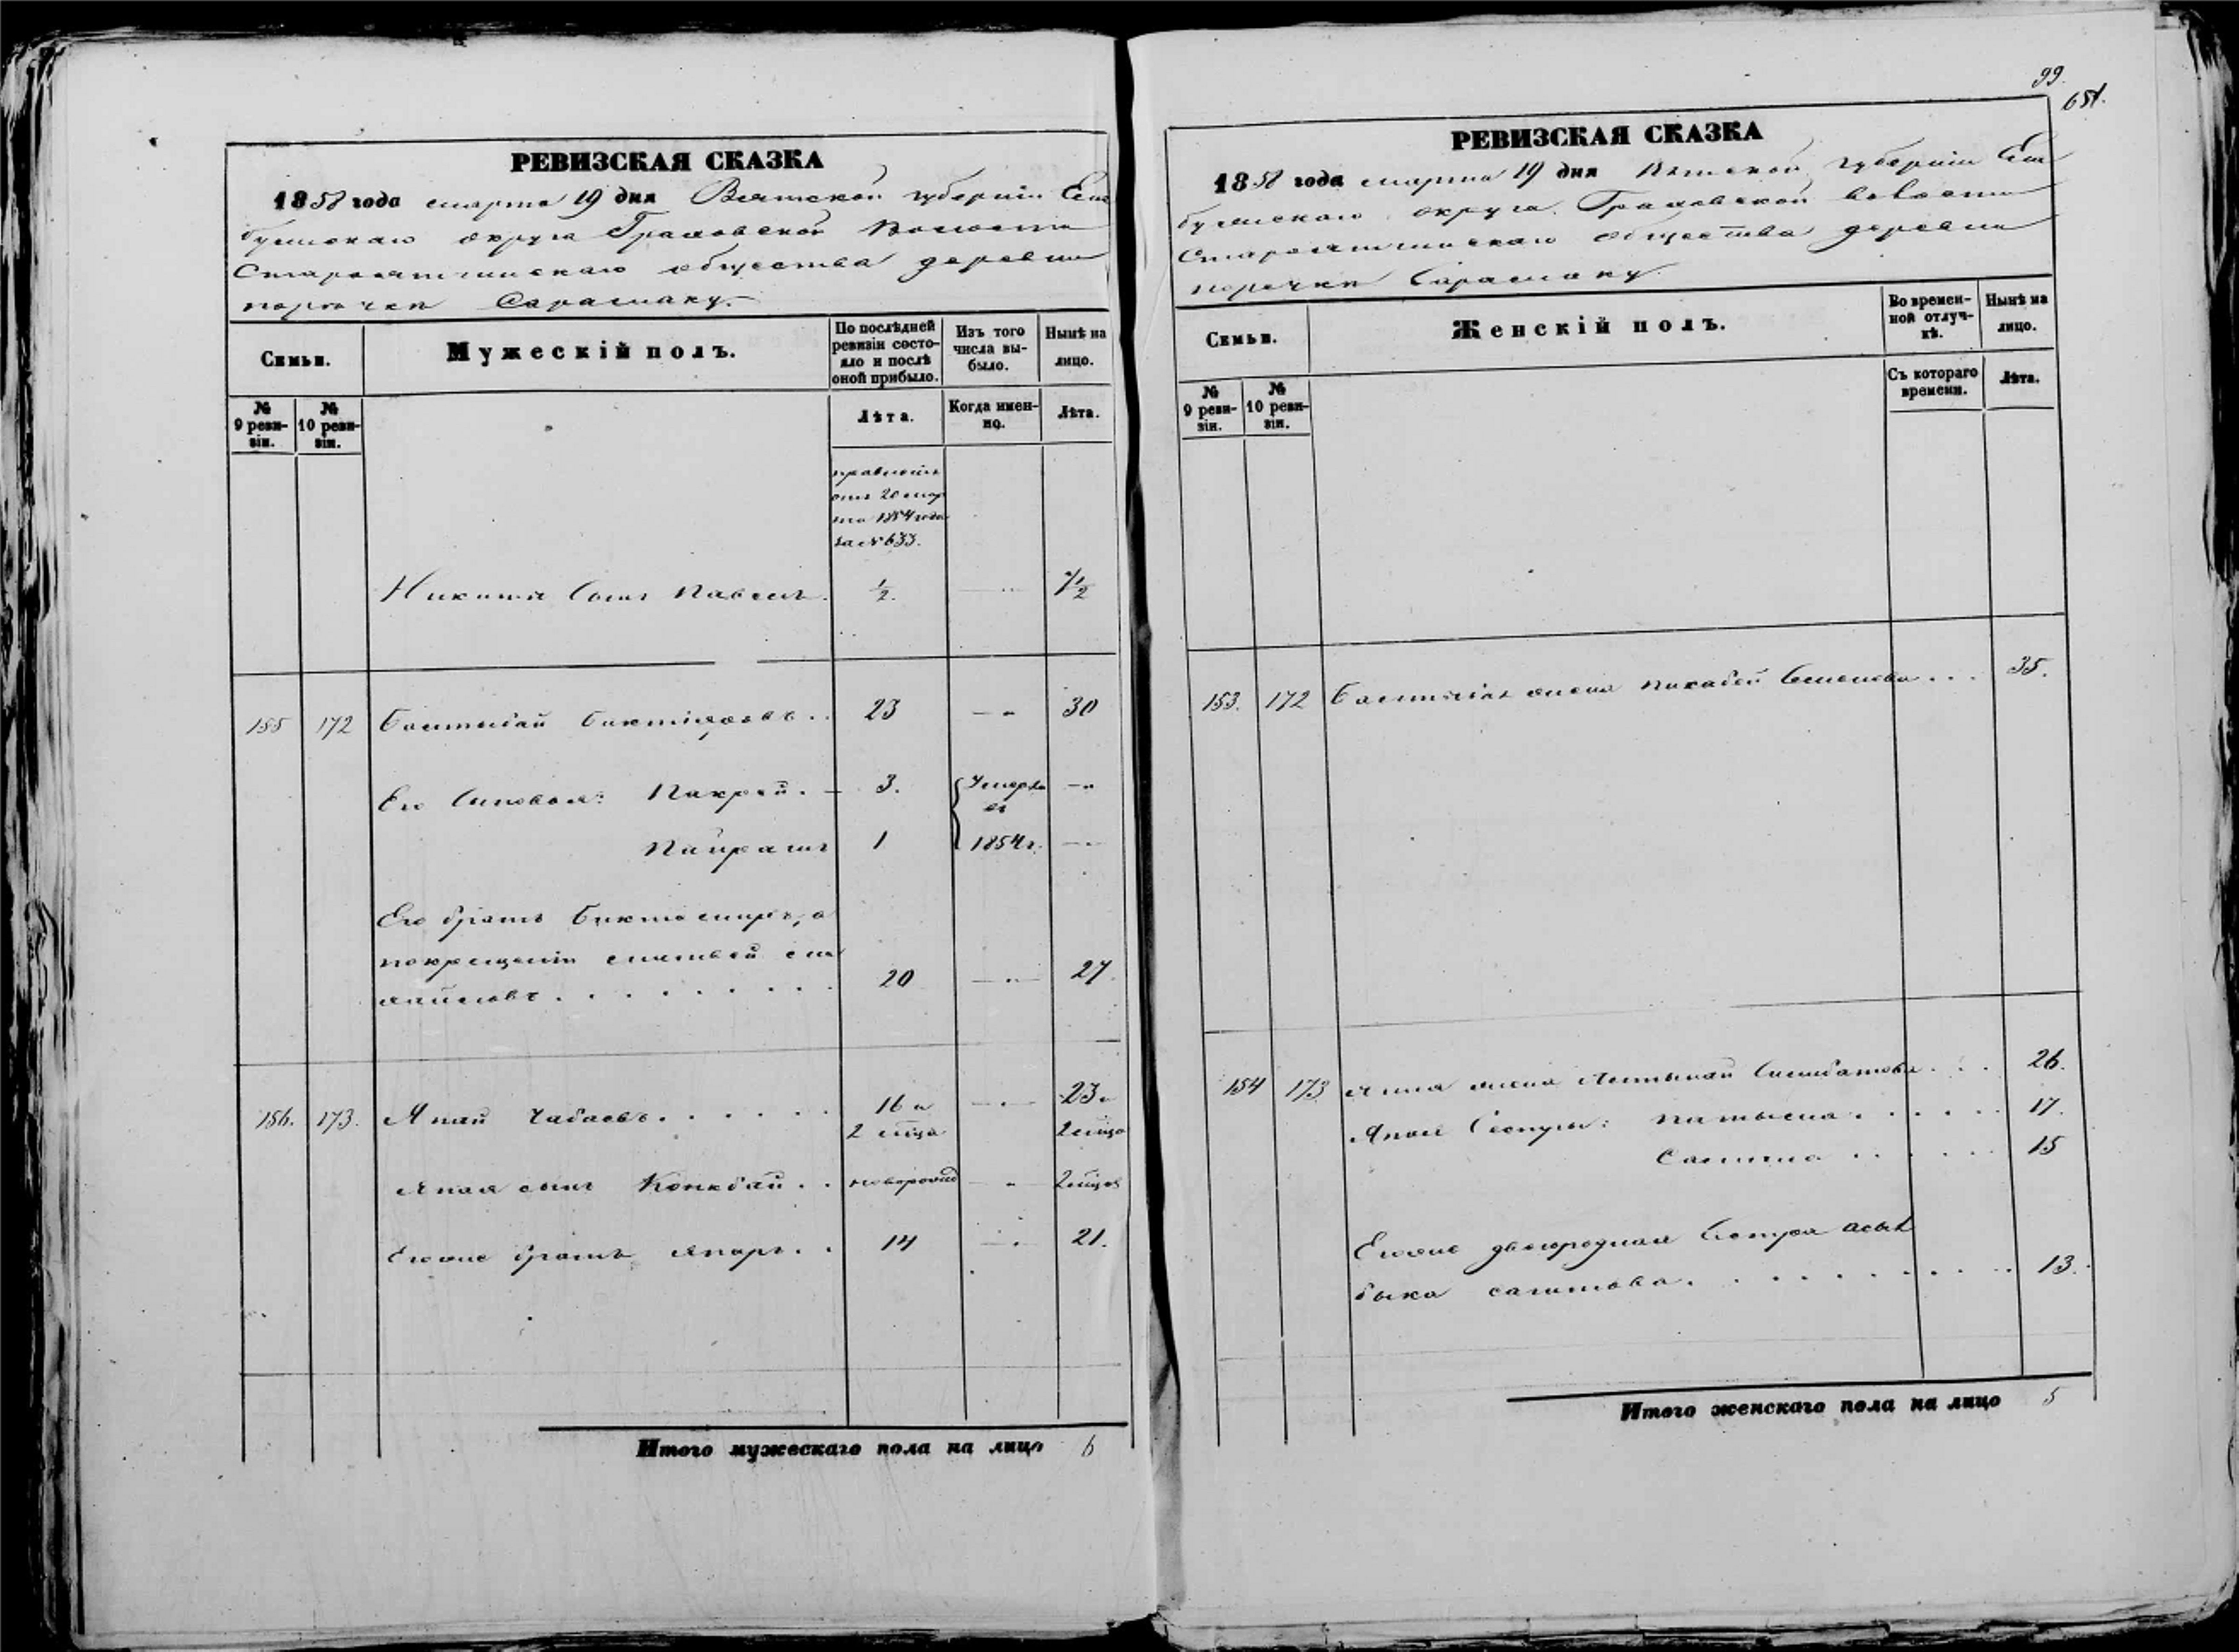 99.
651.
РЕВИЗСКАЯ СКАЗКА
1858 года марта 19 дня Вятской губерніи Ела
бужскаго округа Граховской волости
Староятчинскаго общества деревни
поречки Сарамаку.
Семьи.
Мужескій полъ.
По послѣдней
ревизіи состо-
яло и послѣ
оной прибыло.
Изъ того
числа вы-
было.
Нынѣ на
лицо.
№
9 реви-
зіи.
№
10 реви-
зіи.
Лѣта.
Когда имен-
но.
Лѣта.
отъ 20 мар
та 1854 года
за № 633.
Никиты сынъ Павелъ. ½. 7½
155 172 23 30
Его сыновья: 3. Умерли
въ
1 1854 г.
Его братъ Биктемиръ, а
по крещеніи Матвей
20 27.
156. 173. Япай Чабаевъ 16 и 23 и
2 мѣца 2 мѣца
Япая сынъ Конкбай новорожд 2 мѣцов
Его же братъ Япаръ 14 21.
Итого мужескаго пола на лицо 6
РЕВИЗСКАЯ СКАЗКА
1858 года марта 19 дня Вятской губерніи Ела
бужскаго округа Граховской волости
Староятчинскаго общества деревни
поречки Сарамаку
Семьи.
Женскій полъ.
Во времен-
ной отлуч-
кѣ.
Нынѣ на
лицо.
№
9 реви-
зіи.
№
10 реви-
зіи.
Съ котораго
времени.
Лѣта.
153. 172 жена Семенова 35.
154 173 Япая жена 26.
Япая сестры: 17.
15
Его же двоюродная сестра
быка Сагитова 13.
Итого женскаго пола на лицо 5